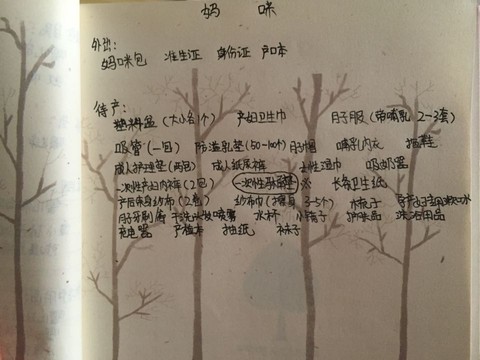 妈 咪
外出:
妈咪包 准生证 身份证 户口本
待产:
塑料盆(大小各1个) 产妇卫生巾 月子服(带哺乳 2-3套)
吸管(一包) 防溢乳垫(50-100片) 月子帽 哺乳内衣 拖鞋
成人护理垫(两包) 成人纸尿裤 湿巾 吸奶器
一次性产妇内裤(2包) 一次性马桶垫 ※ 长条卫生纸
产后束身纱布(2包) 纱布巾(擦身 3-5个) 水瓶子 漱口水
月子牙刷 干洗喷雾 水杯 小镜子 护肤品 洗浴用品
充电器 产检本 抽纸 袜子